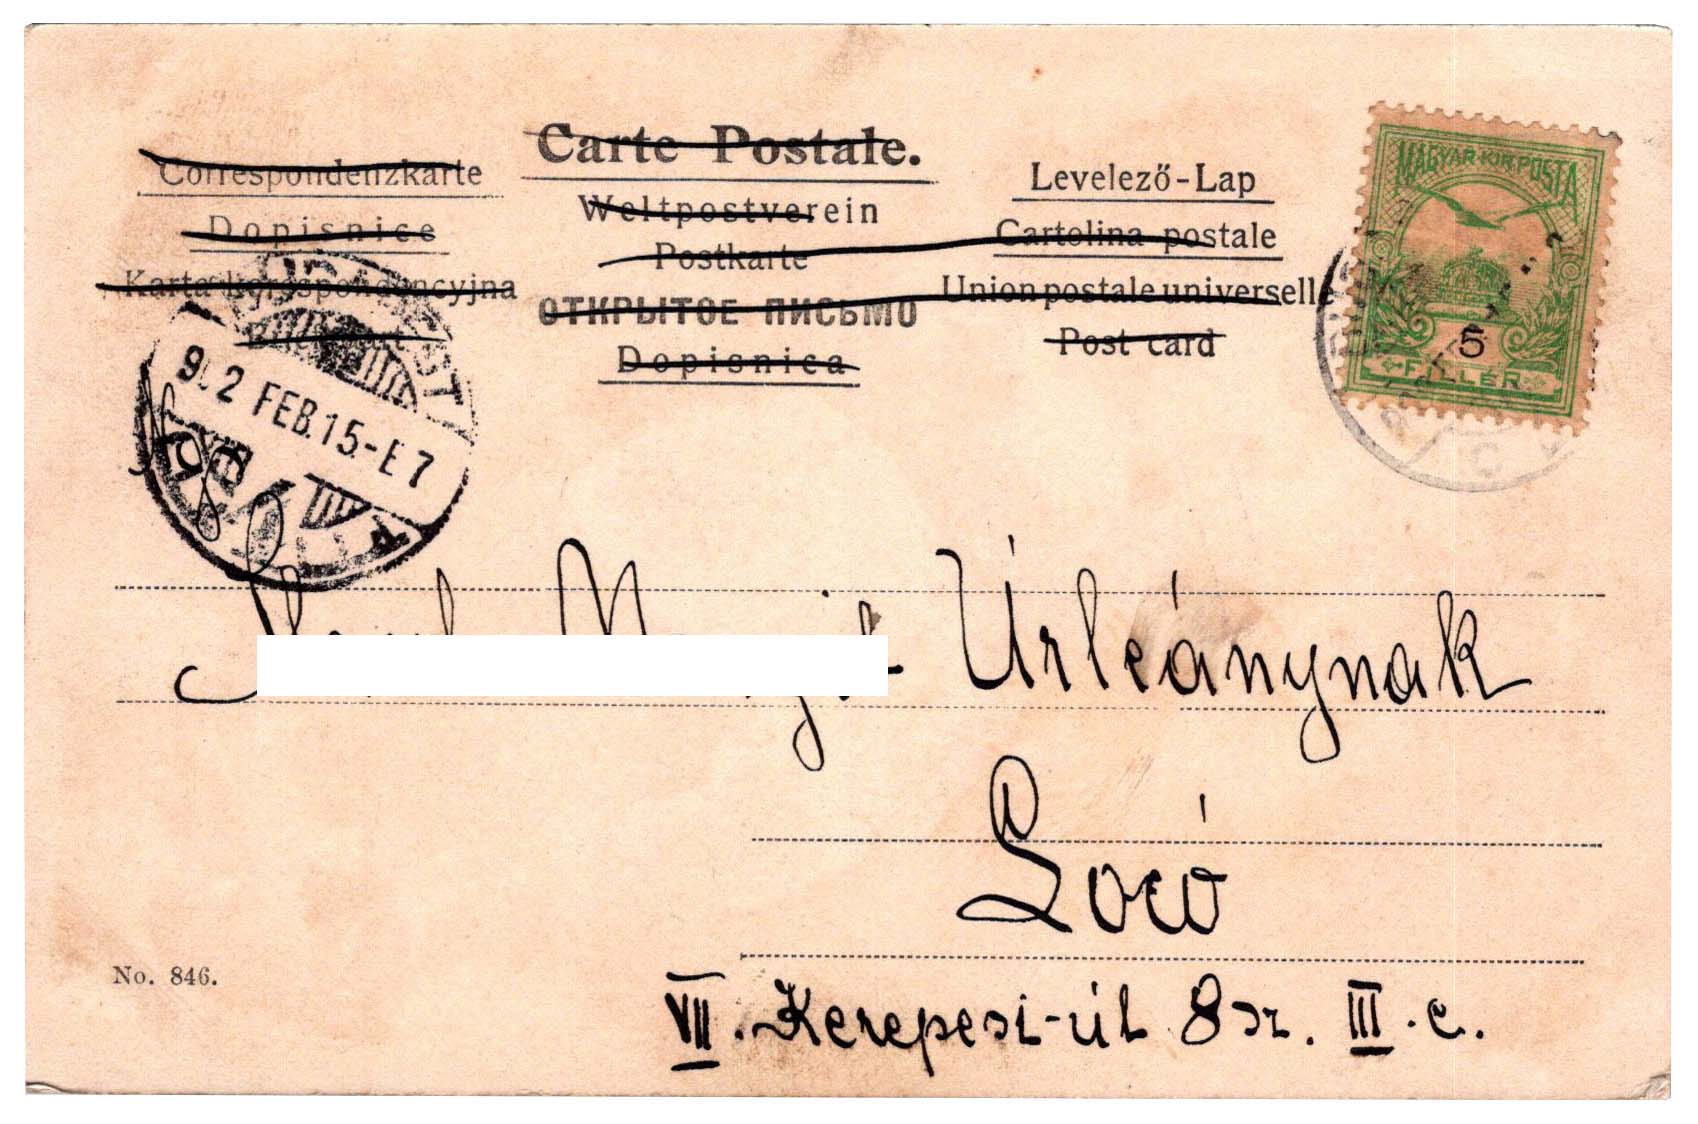 Carte Postale.
Correspondenzkarte
Dopisnice
Karta korespondencyjna
Weltpostverein
Postkarte
ОТКРЫТОЕ ПИСЬМО
Dopisnica
Levelező-Lap
Cartolina postale
Union postale universelle
Post card
MAGYAR·KIR·POSTA
5
FILLÉR
902 FEB.15-E7
Úrleánynak
Locó
No. 846.
VII. Kerepesi-út 8 sz. III. e.